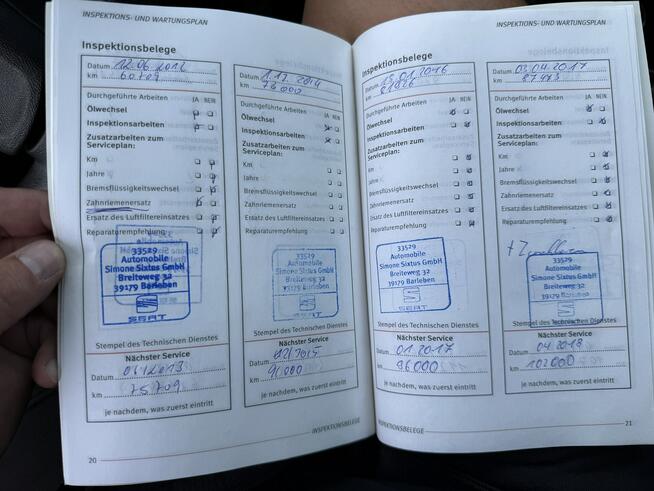 INSPEKTIONS- UND WARTUNGSPLAN
Inspektionsbelege
Datum 12.06.2012
km 60709
Durchgeführte Arbeiten JA NEIN
Ölwechsel
Inspektionsarbeiten
Zusatzarbeiten zum
Serviceplan:
Km
Jahre
Bremsflüssigkeitswechsel
Zahnriemenersatz
Ersatz des Luftfiltereinsatzes
Reparaturempfehlung
33529
Automobile
Simone Sixtus GmbH
Breiteweg 32
39179 Barleben
SEAT
Stempel des Technischen Dienstes
Nächster Service
Datum 06/2013
km 75709
je nachdem, was zuerst eintritt
20
Datum
km 76000
Durchgeführte Arbeiten JA NEIN
Ölwechsel
Inspektionsarbeiten
Zusatzarbeiten zum
Serviceplan:
Km
Jahre
Bremsflüssigkeitswechsel
Zahnriemenersatz
Ersatz des Luftfiltereinsatzes
Reparaturempfehlung
33529
Automobile
Simone Sixtus GmbH
Breiteweg 32
39179 Barleben
SEAT
Stempel des Technischen Dienstes
Nächster Service
Datum 12/2015
km 91000
je nachdem, was zuerst eintritt
INSPEKTIONSBELEGE
Inspektionsbelege
Datum 19.01.2016
km 81926
Durchgeführte Arbeiten JA NEIN
Ölwechsel
Inspektionsarbeiten
Zusatzarbeiten zum
Serviceplan:
Km
Jahre
Bremsflüssigkeitswechsel
Zahnriemenersatz
Ersatz des Luftfiltereinsatzes
Reparaturempfehlung
33529
Automobile
Simone Sixtus GmbH
Breiteweg 32
39179 Barleben
SEAT
Stempel des Technischen Dienstes
Nächster Service
Datum 01.2017
km 96000
je nachdem, was zuerst eintritt
INSPEKTIONSBELEGE
INSPEKTIONS- UND WARTUNGSPLAN
Datum 03.04.2017
km 87473
Durchgeführte Arbeiten JA NEIN
Ölwechsel
Inspektionsarbeiten
Zusatzarbeiten zum
Serviceplan:
Km
Jahre
Bremsflüssigkeitswechsel
Zahnriemenersatz
Ersatz des Luftfiltereinsatzes
Reparaturempfehlung
33529
Automobile
Simone Sixtus GmbH
Breiteweg 32
39179 Barleben
SEAT
Stempel des Technischen Dienstes
Nächster Service
Datum 04.2018
km 102000
je nachdem, was zuerst eintritt
21